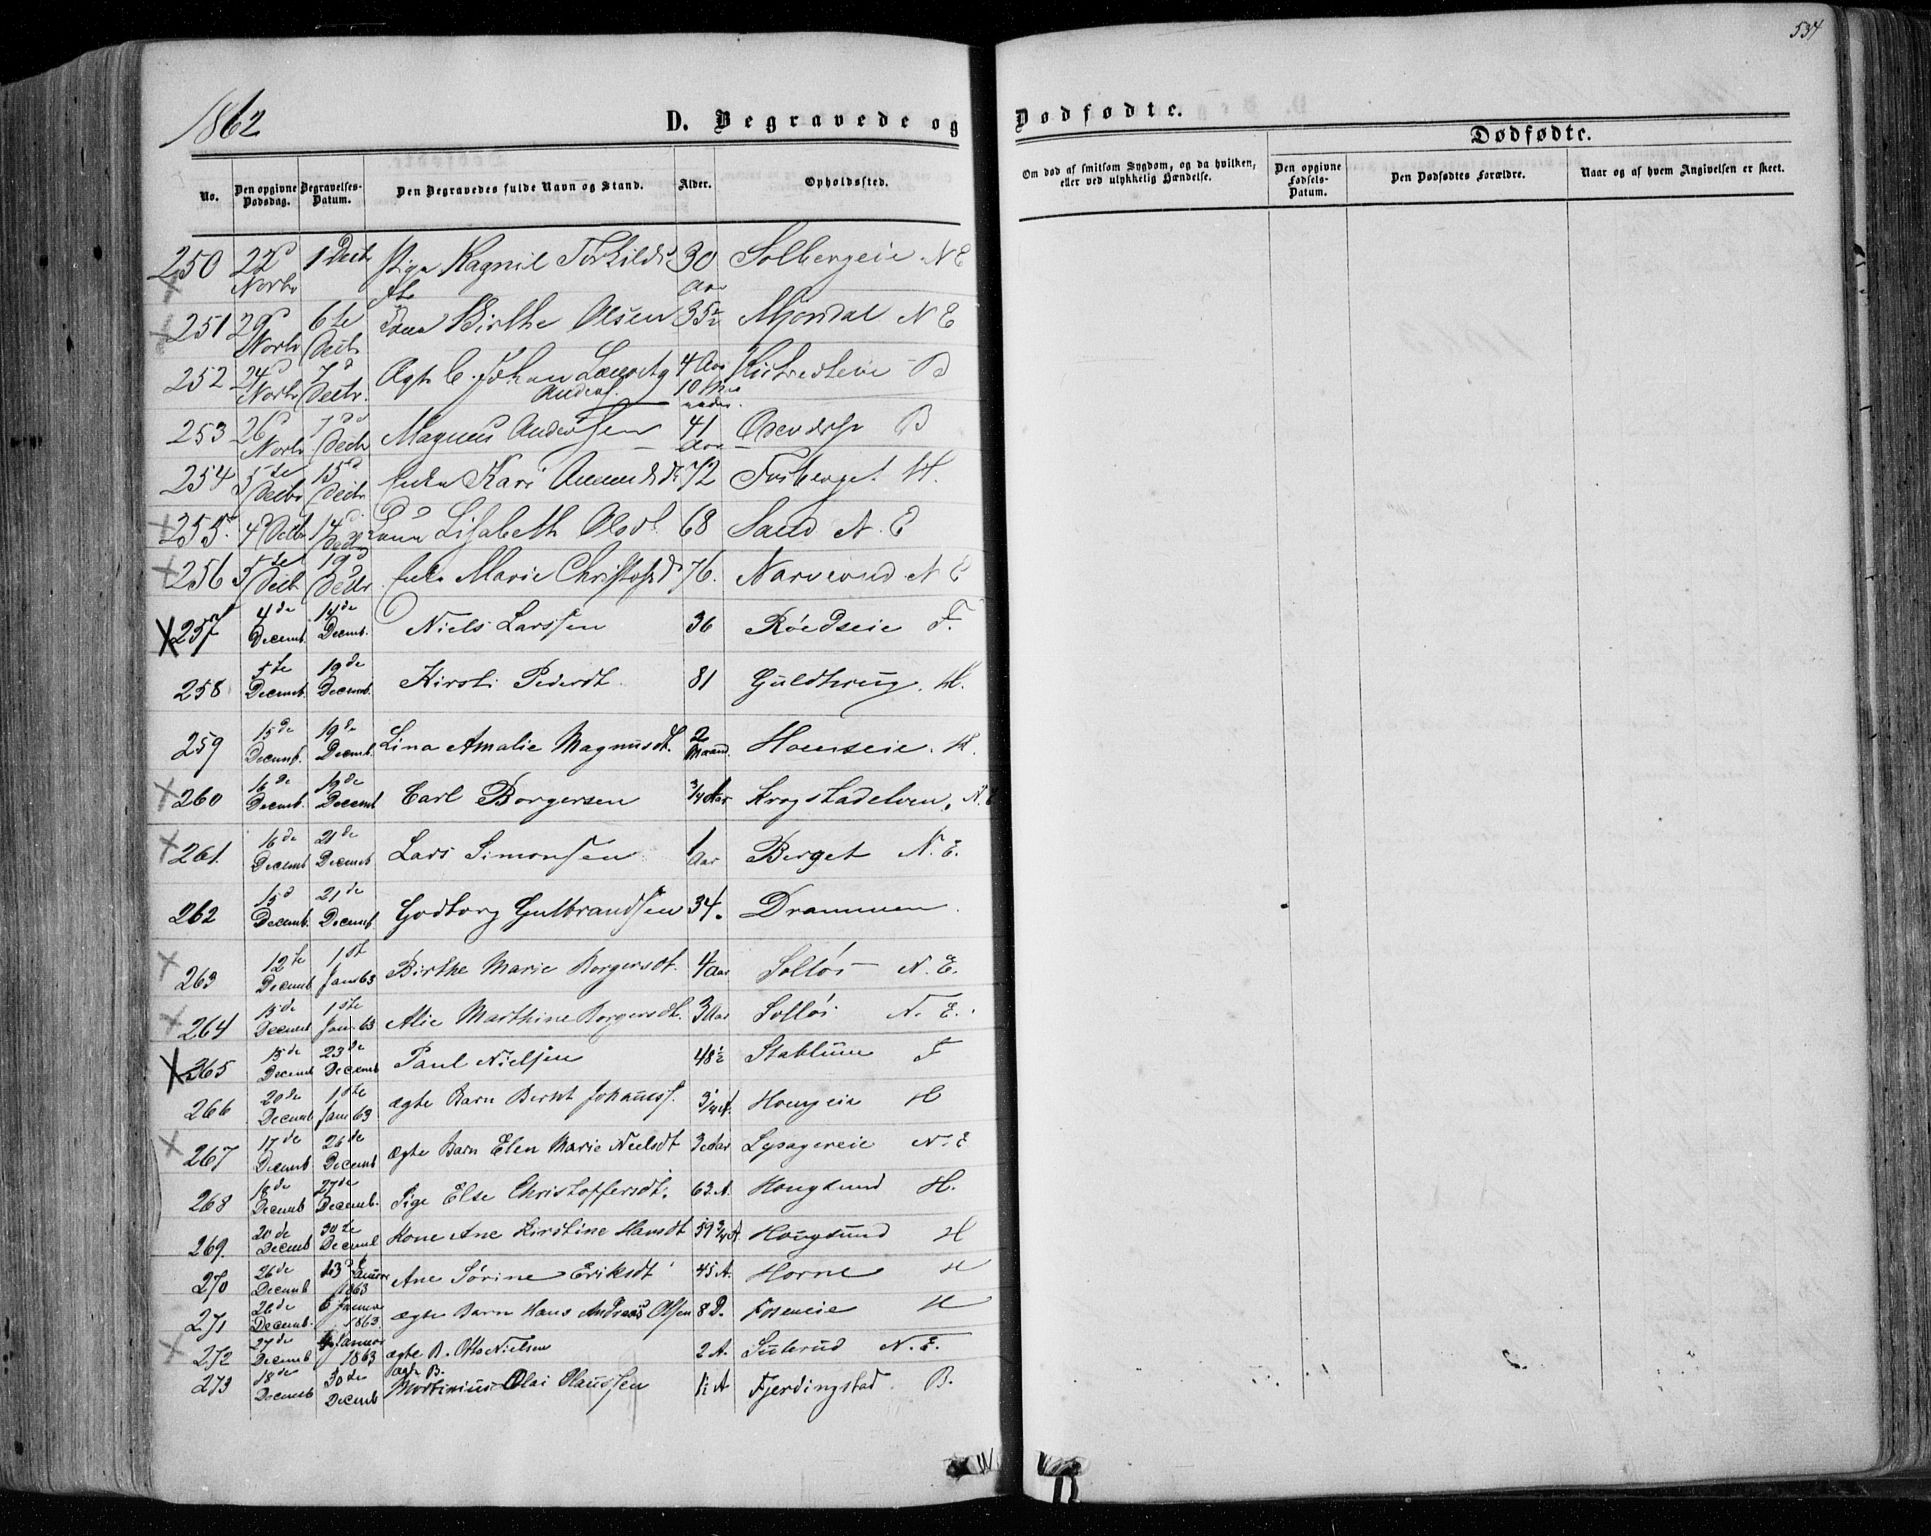 534
1862
D. Begravede og Dødfødte.
Dødfødte.
No. Den opgivne Dødsdag. Begravelses-Datum. Den Begravedes fulde Navn og Stand. Alder. Opholdssted. Om død af smitsom Sygdom, og da hvilken, eller ved ulykkelig Hændelse. Den opgivne Fødsels-Datum. Den Dødfødtes Forældre. Naar og af hvem Angivelsen er skeet.
250 22 Novbr 1 Decbr Pige Ragnil Torkildsdtr 30 Aar Solbergeie N E
251 29 Novbr 6te Decbr Kone Birthe Olsen 35½ Mjøndal N E
252 24 Novbr 7d Decbr Ægte B. Johan Anders. 4 Aar 10 Maaneder B
253 26 Novbr 7de Decbr Magnus Andersen 41 Aar B
254 5te Decbr 15d Decbr Enke Kari 72 Fosberget H.
255. 4d Decbr 14d Decbr Kone Lisabeth Olsdt 68 Sand N. E
256 5te Decbr 19d Decbr Enke Marie Christofsd 76. Narverud N E
257 4de Decemb. 14de Decemb. Niels Larssen 36 Røedseie F.
258 5te Decemb. 19de Decemb. Kirsti Pedersdt. 81 Guldhaug. H.
259 15de Decemb. 19de Decemb. Lina Amalie Magnusdt. 2 Maaned. Homseie. H.
260 16de Decemb. 19de Decemb Carl Borgersen 3/4 Aar Krogstadelven. N. E
261. 16de Decemb 21de Decemb Lars Simonsen 1 Aar Berget N. E.
262 15d Decemb. 21de Decemb. Godborg Gulbrandsen 34. Drammen.
263 12te Decemb 1ste Jan 63 Birthe Marie Borgersdt. 4 Aar Solløs N. E.
264 15de Decemb 1ste Jan. 63 Alie Marthine Borgersdt. 3 Aar Solløs N. E.
265 15de Decemb 23de Decemb Paul Nielsen 48½ Stablum F
266 20de Decemb 1ste Jan 63 ægte Barn Bernt Johanss. 3/4 A. Homseie H
267 17de Decemb 26de Decemb ægte Barn Elen Marie Nielsdt 3 Aar Lysagereie N. E
268 18de Decemb 27de Decemb. Pige Else Christoffersdt. 62 A. Hougsund H.
269. 20de Decemb 30te Decemb Kone Ane Kirstine Hansdt 59 3/4 A Hougsund H
270 26de Decemb 3 Januar 1863 Ane Sørine Eriksdt 45 A. Horne H
271 26de Decemb. 6 Januar 1863. ægte Barn Hans Andreas Olsen 8 D. Foseneie H
272 27de Decemb Januar 1863 ægte B. Otto Nielsen 2 A. Sulerud N. E.
273 18de Decemb 30te Decemb ægte B. Martinius Olai Olaussen 1½ A Fjerdingstad. B.